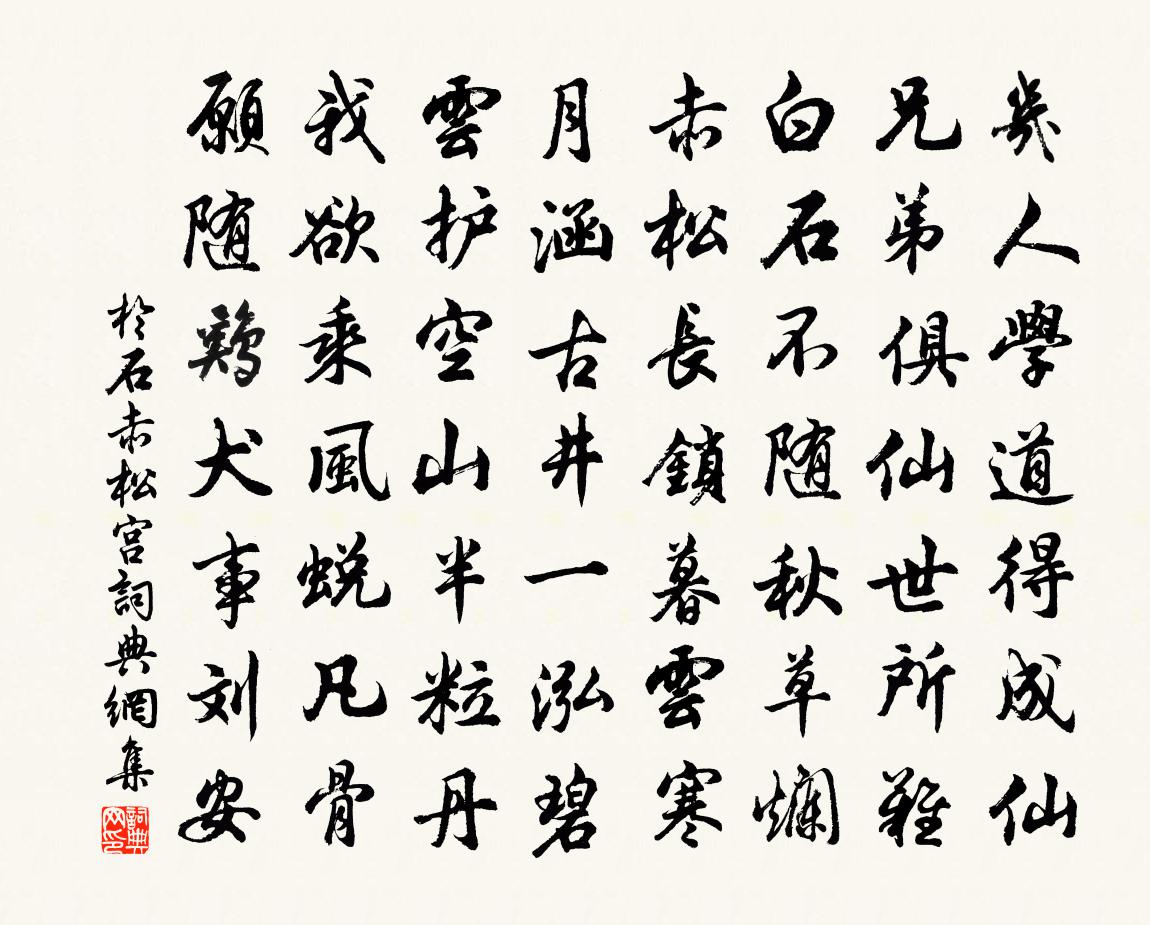 幾人學道得成仙
兄弟俱仙世所難
白石不随秋草爛
赤松長鎖暮雲寒
月涵古井一泓碧
雲护空山半粒丹
我欲乘風蜕凡骨
願随鷄犬事刘安
於石赤松宫詞典網集
詞典网印